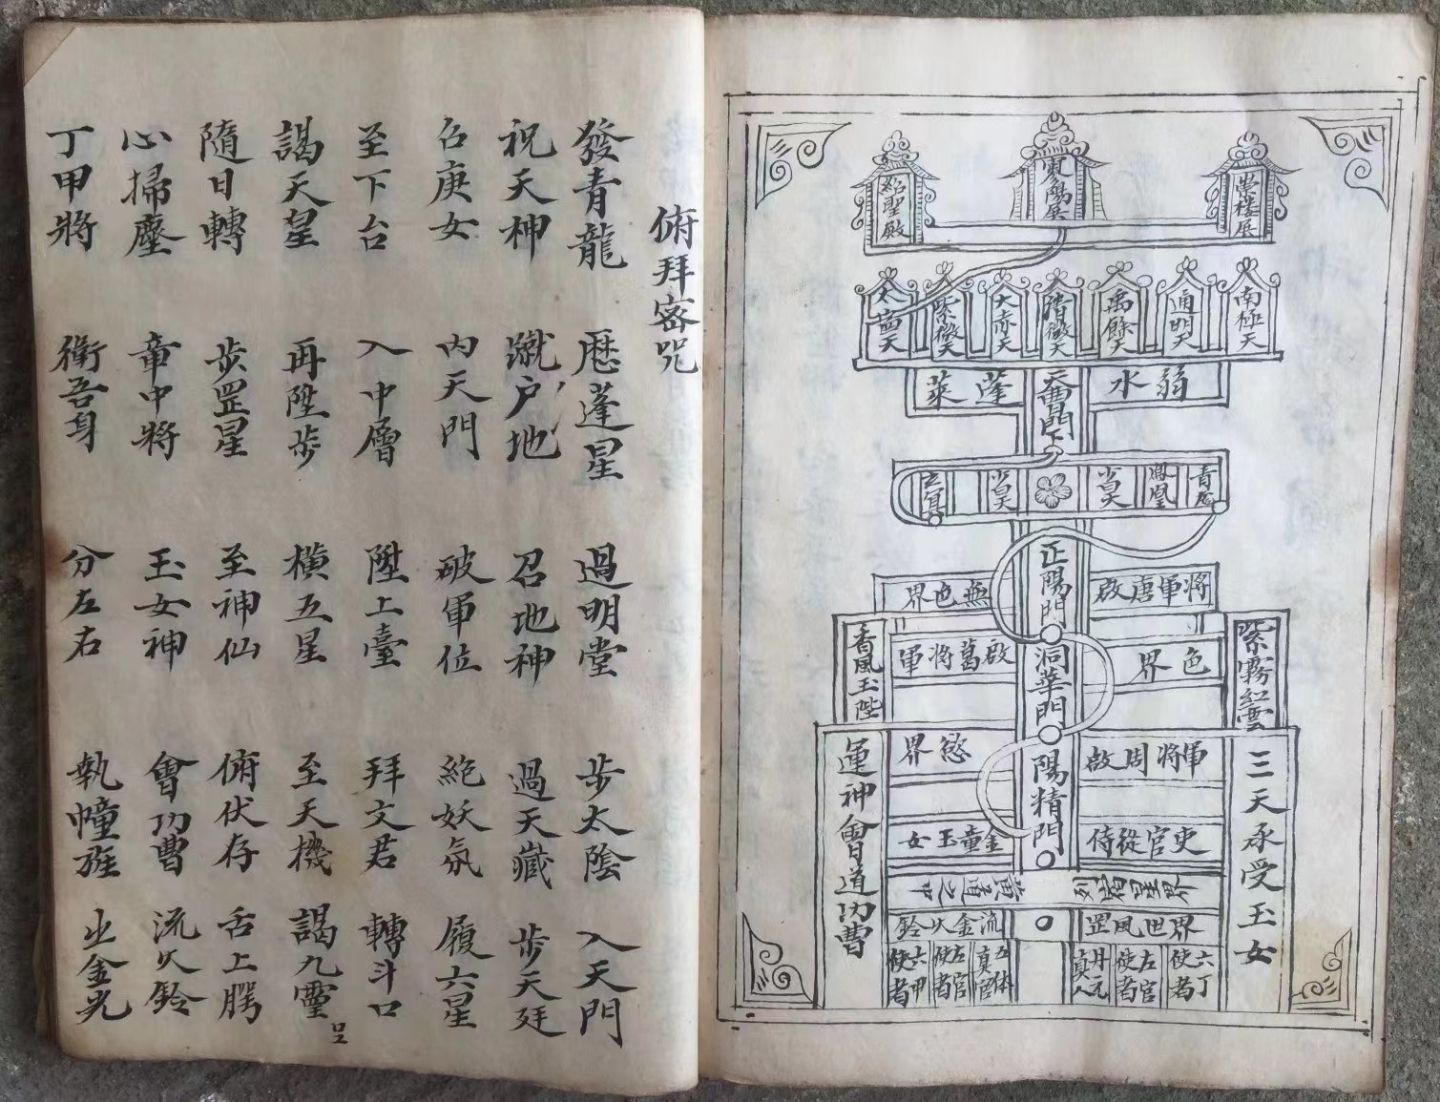 俯拜密咒
發青龍 歷蓬星 過明堂 步太陰 入天門
祝天神 蹴户地 召地神 過天藏 步天廷
召庚女 内天門 破軍位 絕妖氛 履六星
至下台 入中層 陞上臺 拜文君 轉斗口
謁天星 再陞步 橫五星 至天機 謁九靈
隨日轉 步罡星 至神仙 俯伏存 舌上腭
心掃塵 童中將 玉女神 會功曹 流火鈴
丁甲將 衛吾身 分左右 執幢旌 止金光
南極天
通明天
禹餘天
清微天
大赤天
紫微天
弱水
蓬萊
青龍
鳳凰
正陽門
洞華門
陽精門
將軍唐啟
無色界
色界
啟葛將軍
紫霧紅雲
香風玉陛
將軍周啟
慾界
吏官從侍
金童玉女
三天承受玉女
運神會道功曹
列宿星界
黃道之中
界世風罡
流金火鈴
六丁使者
左官使者
丹元真人
五體真官
左官使者
六甲使者